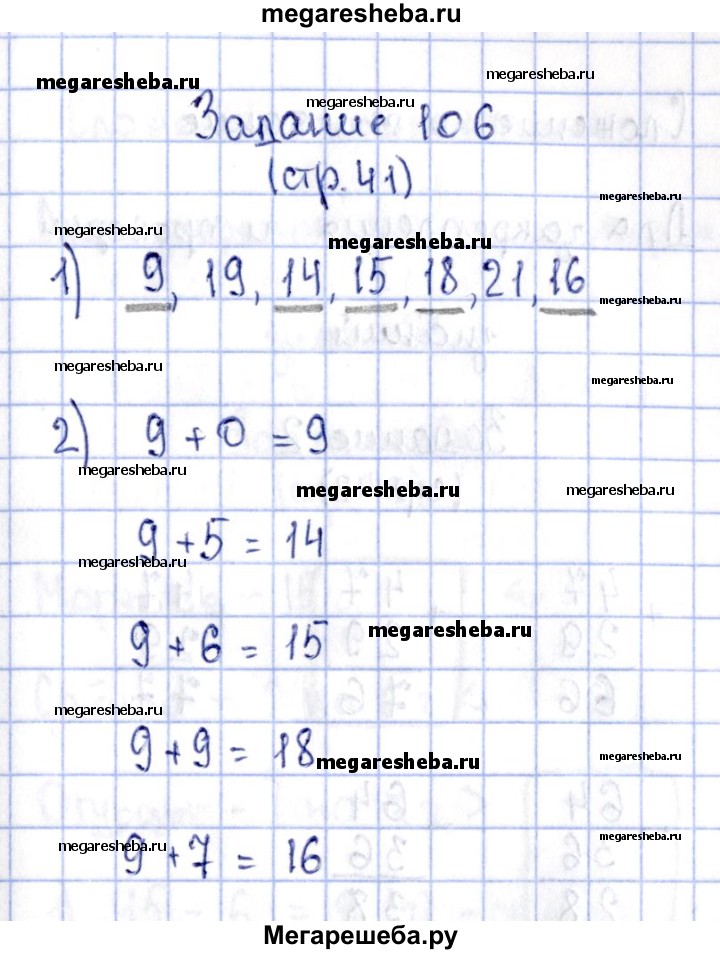 megaresheba.ru
megaresheba.ru
megaresheba.ru
megaresheba.ru
Задание 106
(стр. 41)
megaresheba.ru
megaresheba.ru
megaresheba.ru
1) 9, 19, 14, 15, 18, 21, 16
megaresheba.ru
megaresheba.ru
megaresheba.ru
2) 9 + 0 = 9
megaresheba.ru
megaresheba.ru
megaresheba.ru
9 + 5 = 14
megaresheba.ru
9 + 6 = 15
megaresheba.ru
megaresheba.ru
9 + 9 = 18
megaresheba.ru
megaresheba.ru
megaresheba.ru
megaresheba.ru
9 + 7 = 16
Мегарешеба.ру